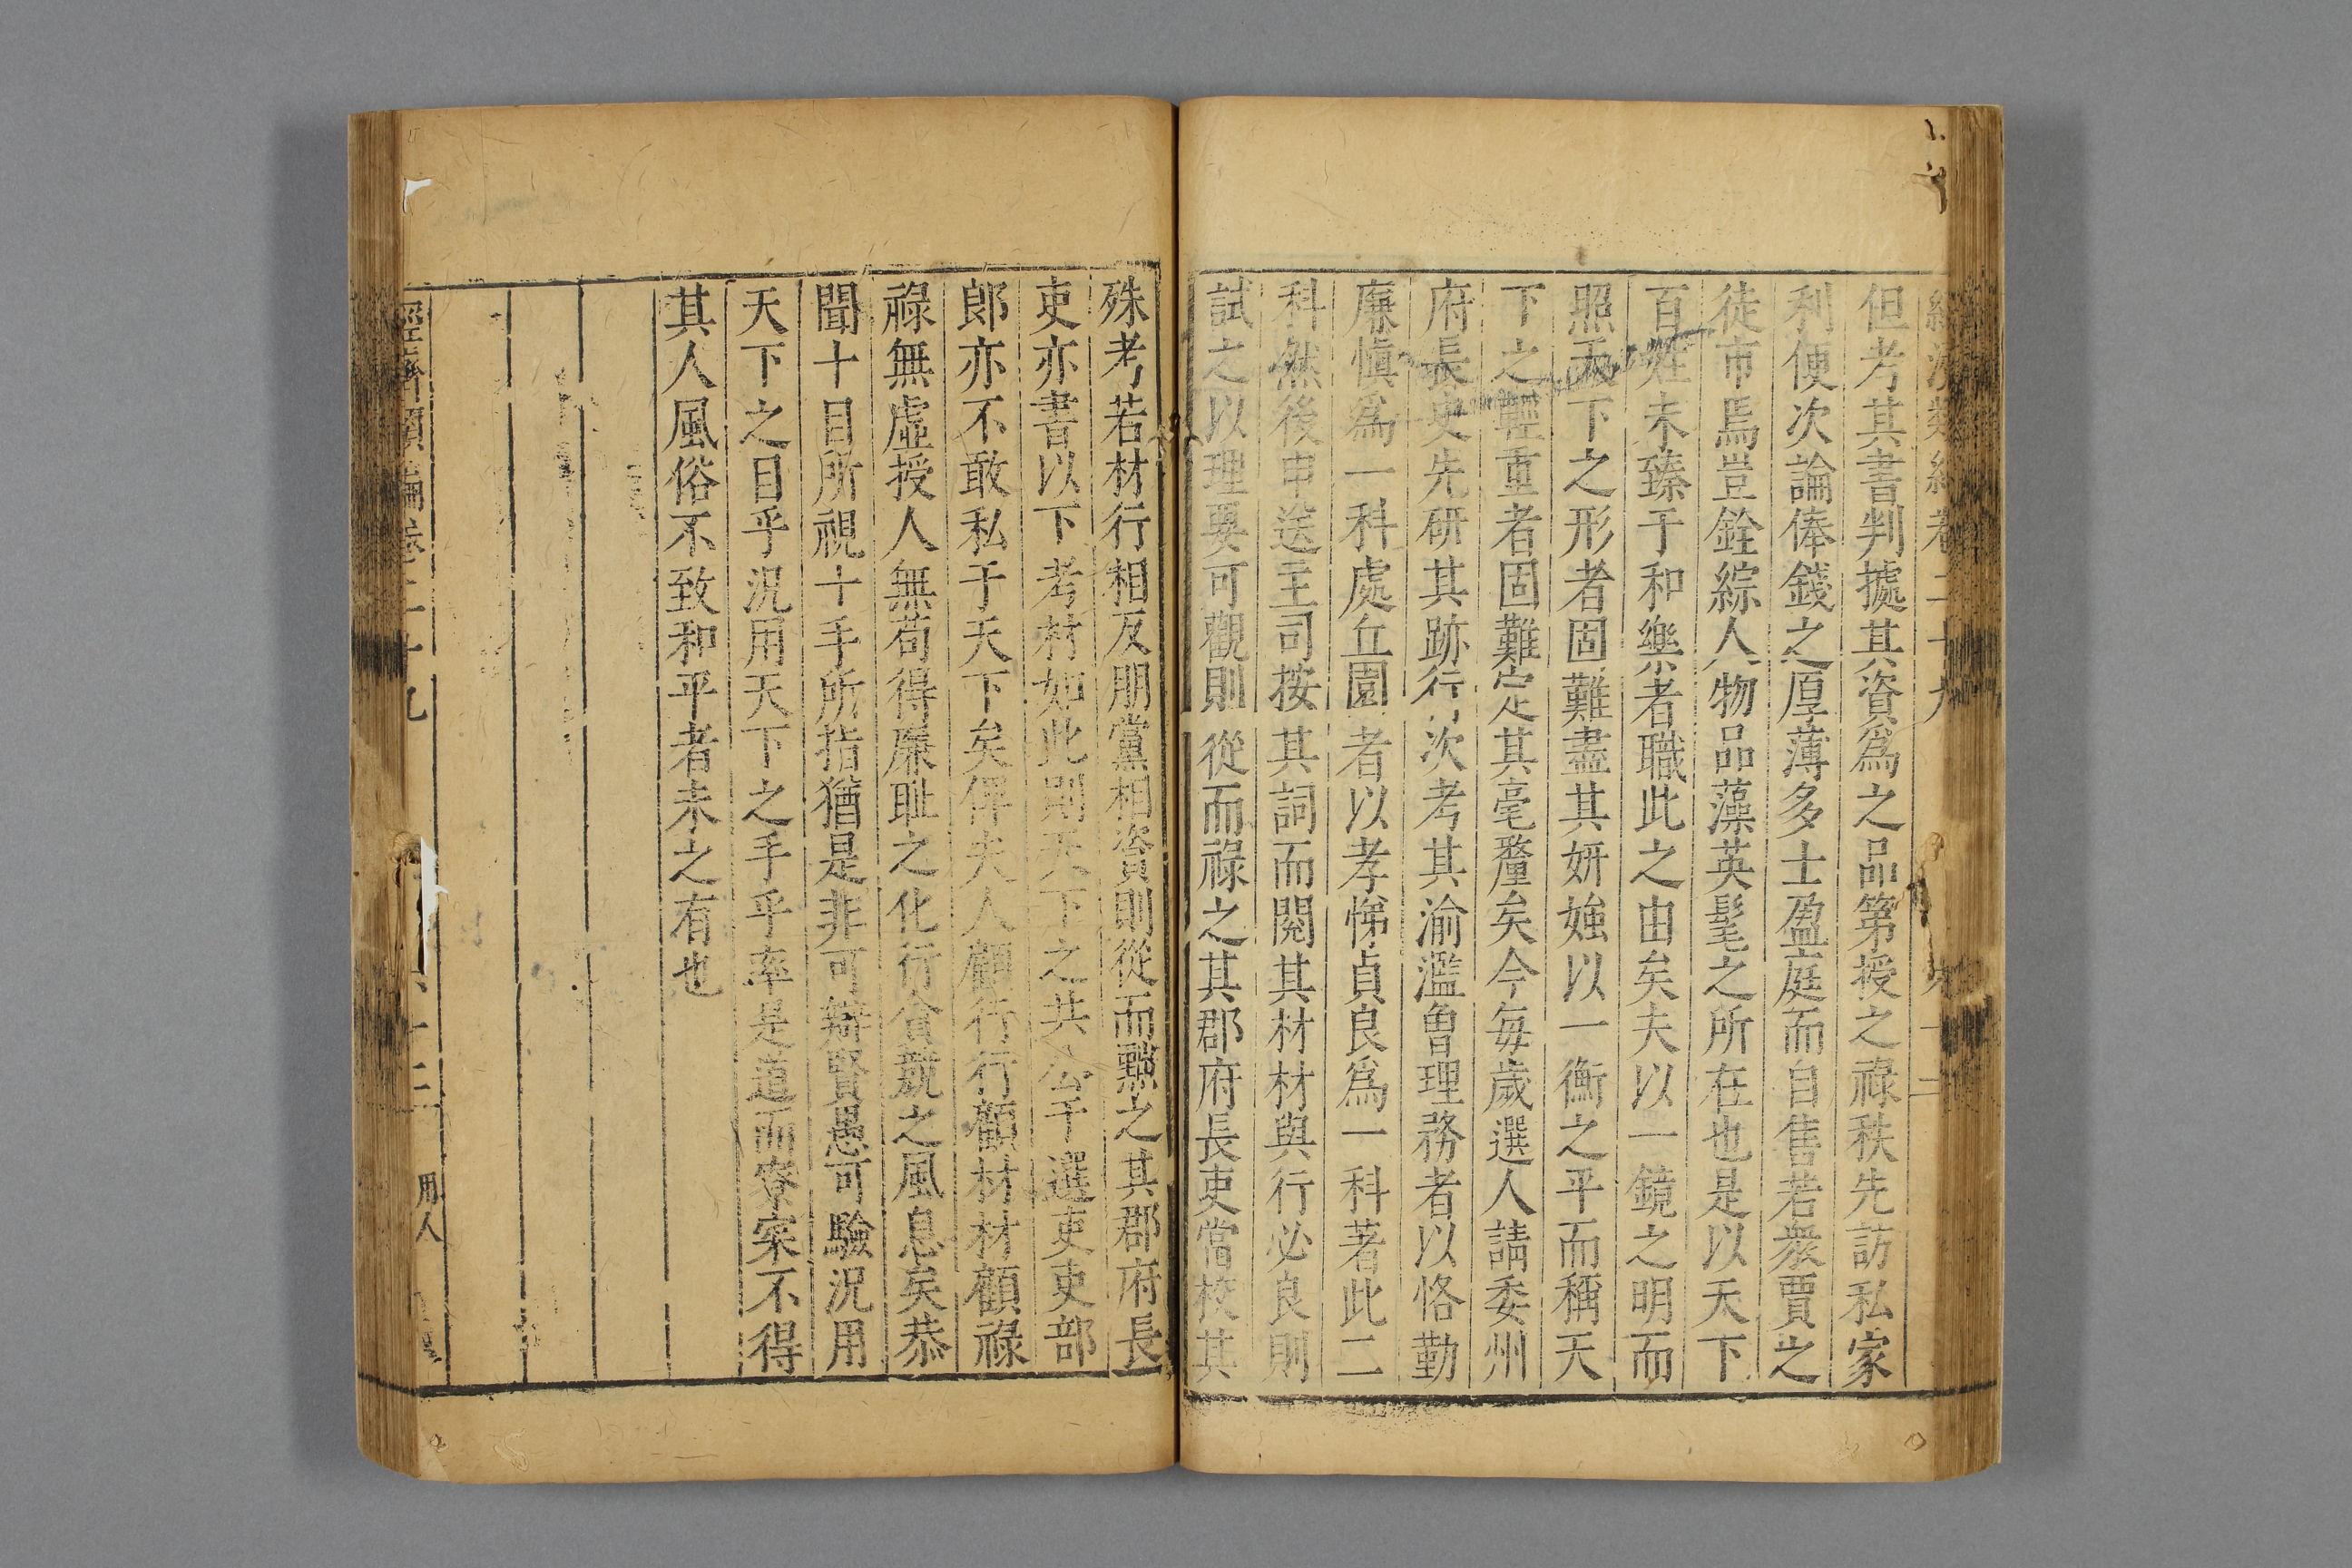 但考其書判據其資爲之品第授之祿秩先訪私家
利便次論俸錢之厚薄多士盈庭而自售若衆賈之
徒市焉豈銓綜人物品藻英髦之所在也是以天下
百姓未臻于和樂者職此之由矣夫以一鏡之明而
照天下之形者固難盡其妍媸以一衡之平而稱天
下之輕重者固難定其毫釐矣今每歲選人請委州
府長吏先研其跡行次考其渝濫曾理務者以恪勤
廉愼爲一科處丘園者以孝悌貞良爲一科著此二
科然後申送主司按其詞而閱其材材與行必良則
試之以理要可觀則從而祿之其郡府長吏當校其
殊考若材行相反朋黨相資則從而黜之其郡府長
吏亦書以下考材如此則天下之共公于選吏吏部
郎亦不敢私于天下矣俾夫人顧行行顧材材顧祿
祿無虛授人無苟得廉耻之化行貪競之風息矣恭
聞十目所視十手所指猶是非可辯賢愚可驗況用
天下之目乎況用天下之手乎率是道而寮寀不得
其人風俗不致和平者未之有也
經濟類編卷二十九 六十三 用人